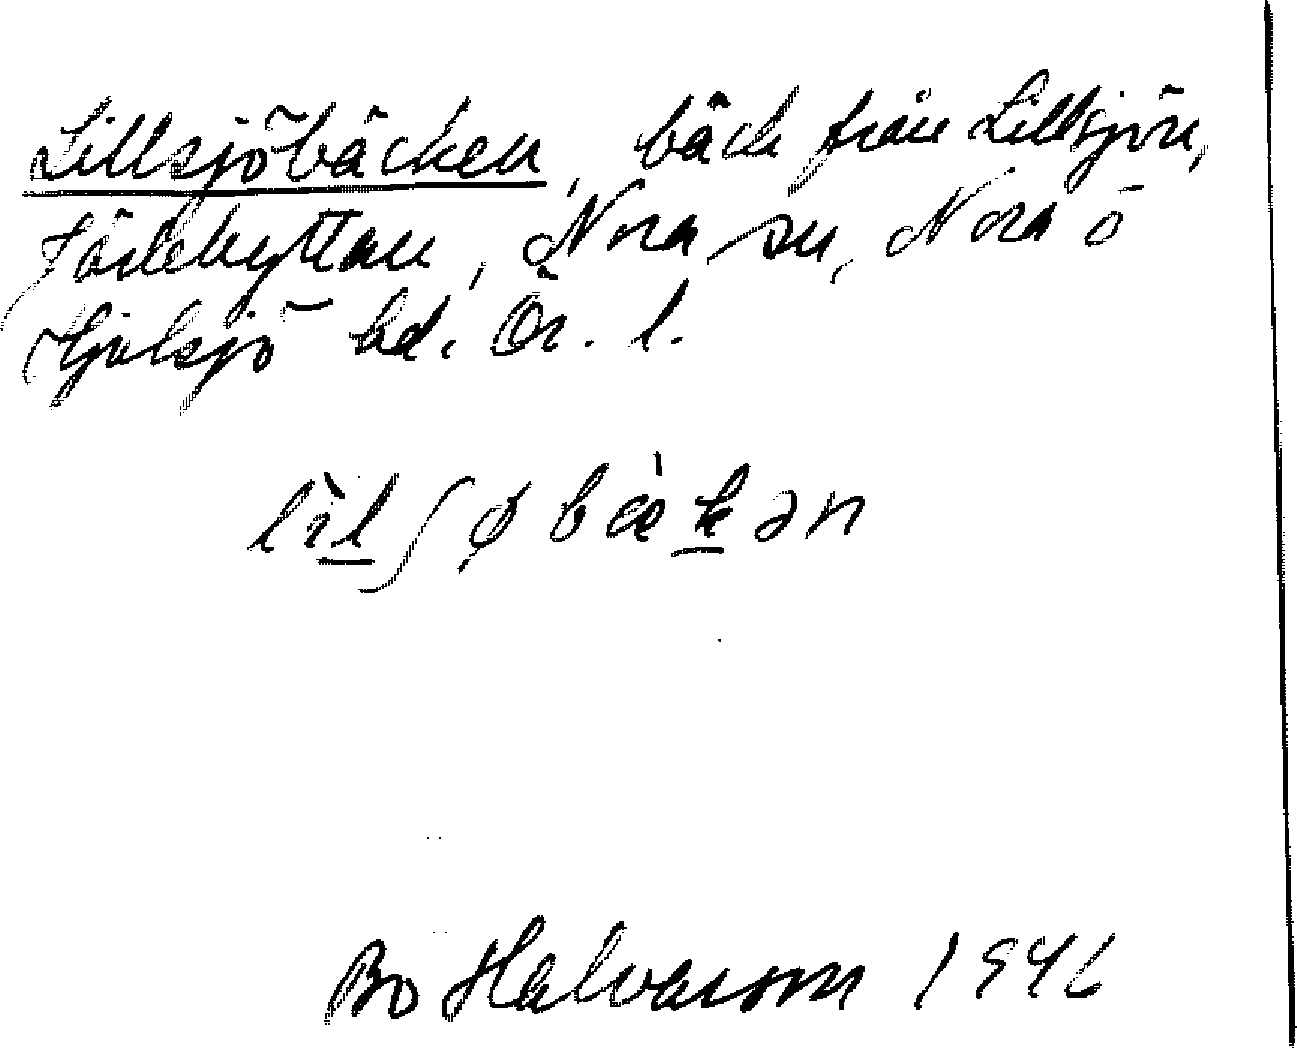 Lillsjöbäcken, bäck från Lillsjön,
Järlehyttan, Nora sn, Nora ö
Hjulsjö hd. Ör. l.
lìlʃøbæ̀kən
Bo Halvarson 1946